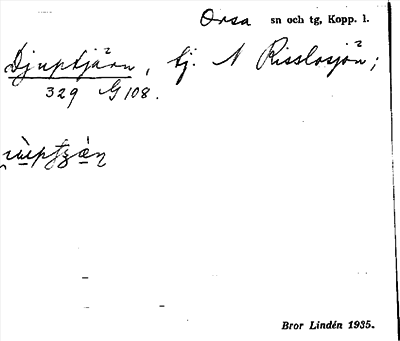 Orsa sn och tg, Kopp. l.
Djuptjärn, tj. N Risslosjön;
329 G 108.
Bror Lindén 1935.